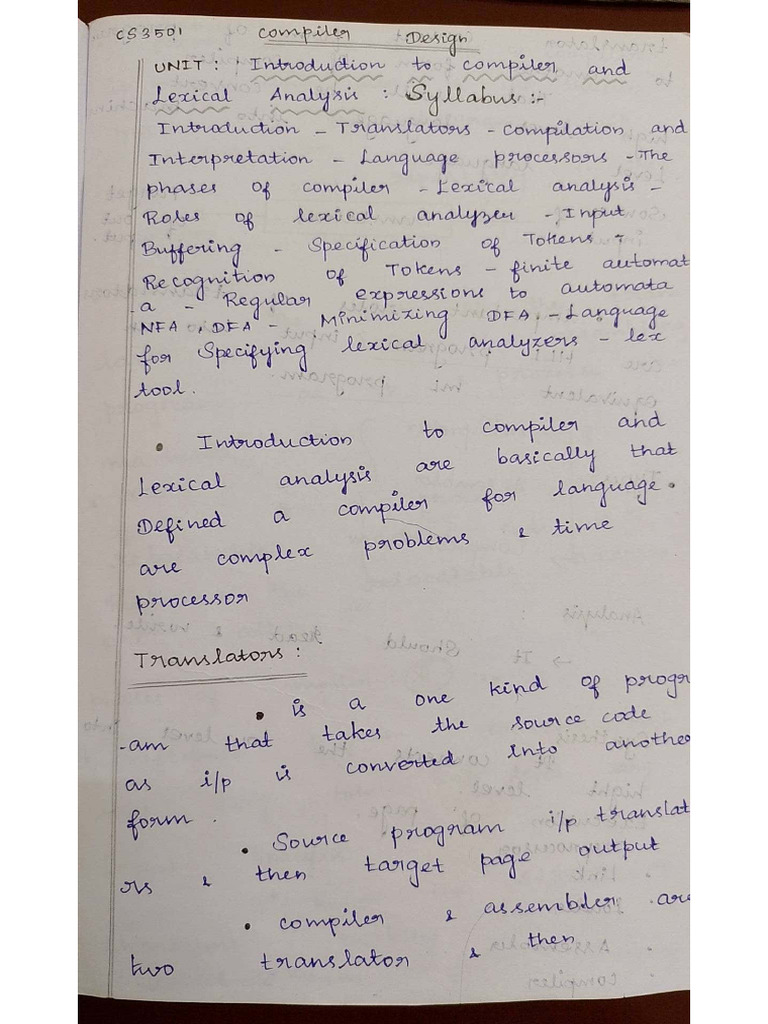 CS3501 Compiler Design
UNIT : Introduction to compiler and
Lexical Analysis : Syllabus :-
Introduction - Translators - compilation and
Interpretation - Language processors - The
phases of compiler - Lexical analysis -
Roles of lexical analyzer - Input
Buffering - Specification of Tokens -
Recognition of Tokens - finite automat
a - Regular expressions to automata
NFA, DFA - Minimizing DFA, - Language
for Specifying lexical analyzers - lex
tool.
• Introduction to compiler and
Lexical analysis are basically that
Defined a compiler for language.
are complex problems & time
processor
Translators :
• is a one kind of progr
-am that takes the source code
as i/p is converted into another
form.
• Source program i/p translat
rs & then target page output
• compiler & assembler are
two translator & then